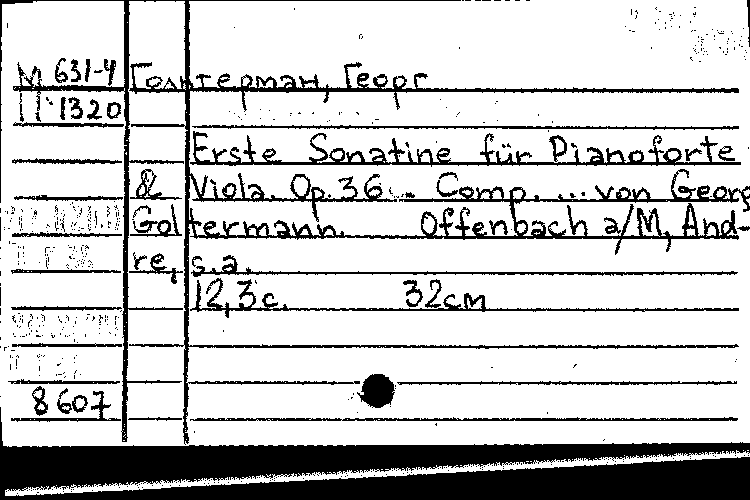 М 631-4 Гольтерман, Георг
П 1320
Erste Sonatine für Pianoforte
& Viola. Op. 36 .. - Comp. ... von Georg
Goltermann. Offenbach a/M, And-
re, s.a.
12, 3 с. 32 см
8607